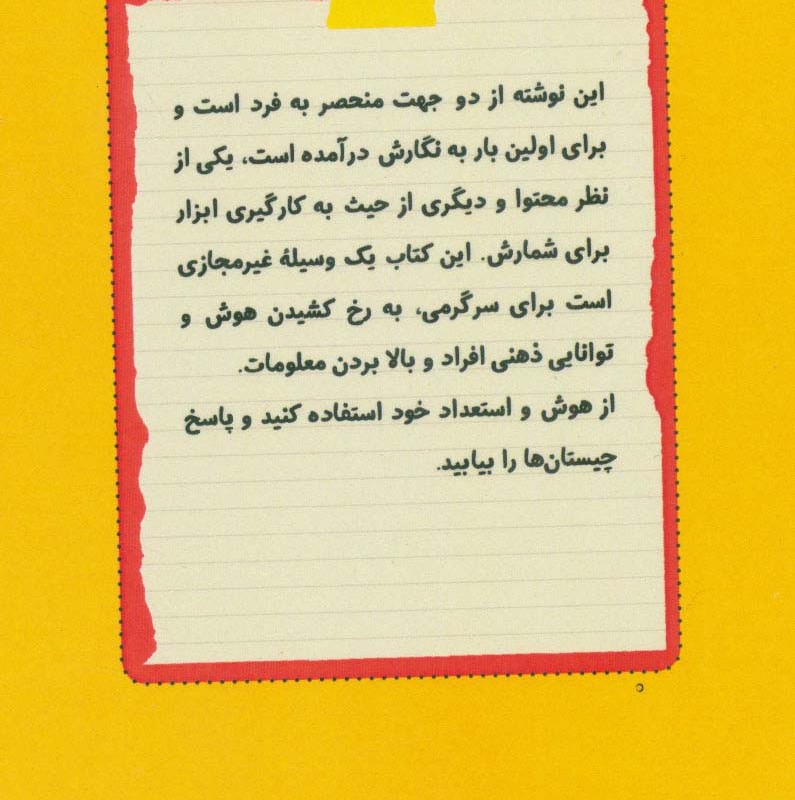 این نوشته از دو جهت منحصر به فرد است و
برای اولین بار به نگارش درآمده است، یکی از
نظر محتوا و دیگری از حیث به کارگیری ابزار
برای شمارش. این کتاب یک وسیلهٔ غیرمجازی
است برای سرگرمی، به رخ کشیدن هوش و
توانایی ذهنی افراد و بالا بردن معلومات.
از هوش و استعداد خود استفاده کنید و پاسخ
چیستان‌ها را بیابید.